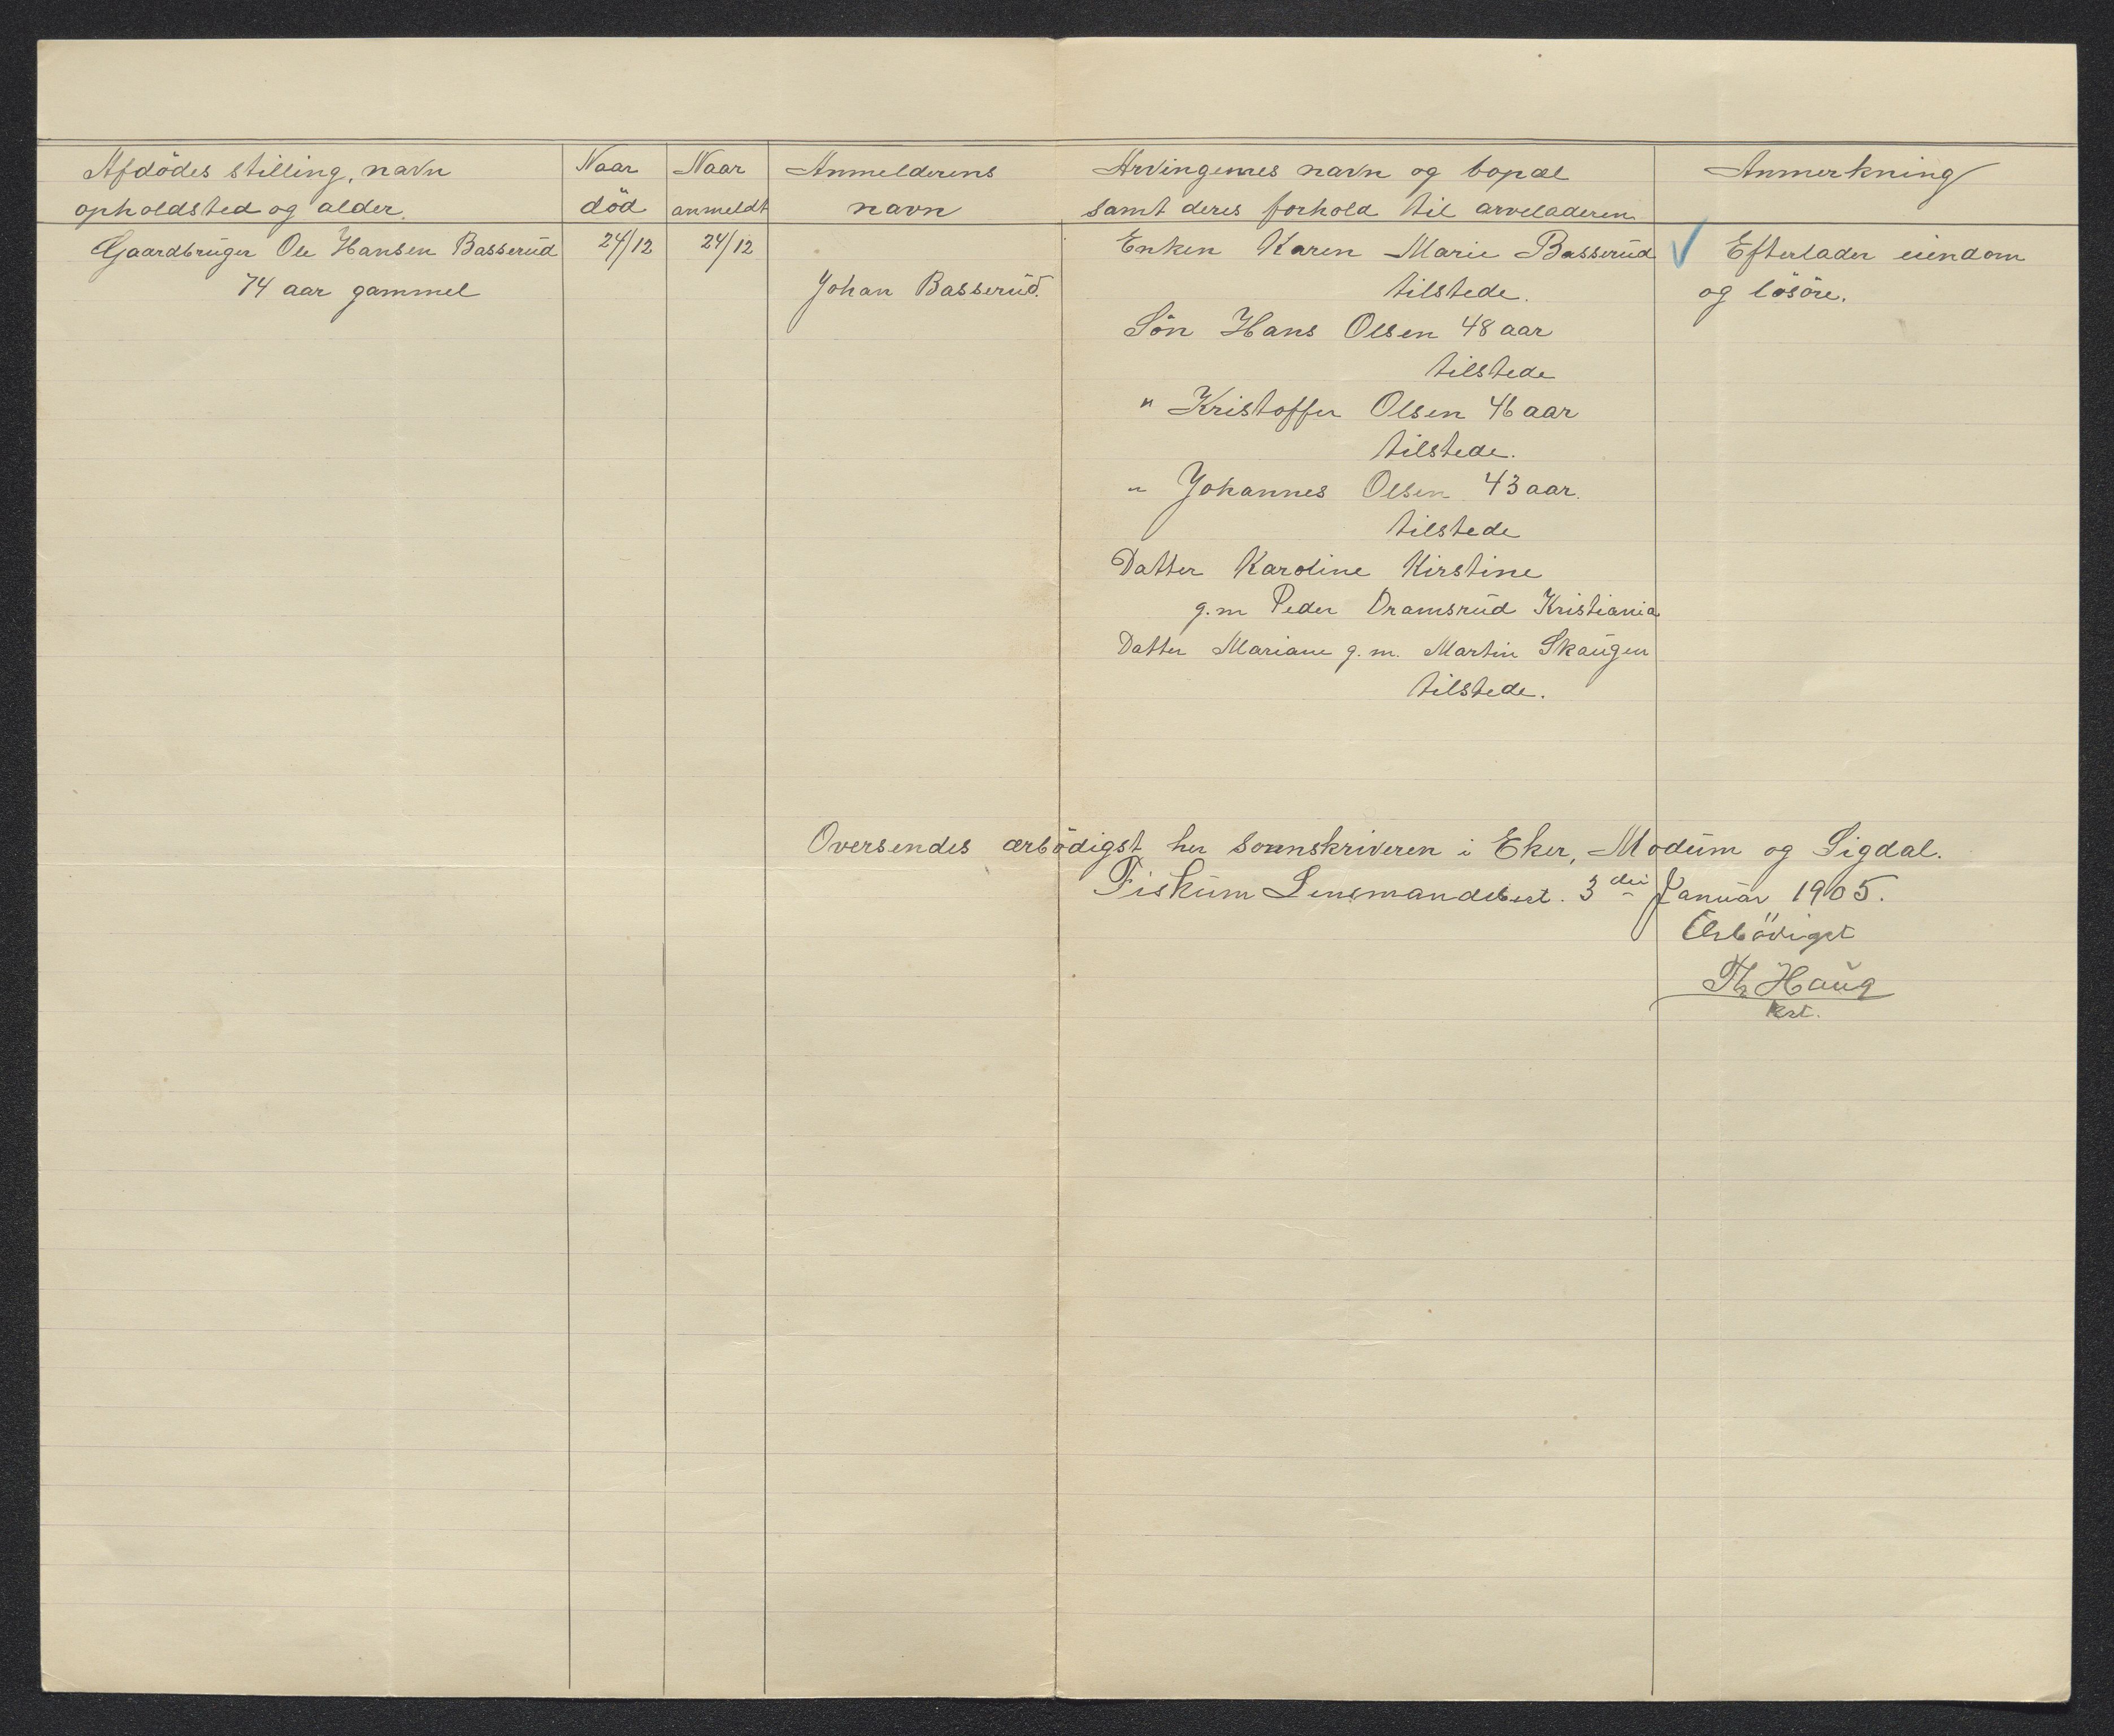 Afdödes stilling, navn
opholdsted og alder.
Naar
död
Naar
anmeldt
Anmelderens
navn
Arvingernes navn og bopæl
samt deres forhold til arveladeren
Anmerkning
Gaardbruger Ole Hansen Basserud
74 aar gammel
24/12
24/12
Johan Basserud.
Enken Karen Marie Basserud
tilstede.
Sön Hans Olsen 48 aar
tilstede
" Kristoffer Olsen 46 aar
tilstede.
" Johannes Olsen 43 aar.
tilstede
Datter Karoline Kirstine
g.m Peder Dramsrud Kristiania
Datter Mariane g.m. Martin Skaugen
tilstede.
✓ Efterlader eiendom
og lösöre.
Oversendes ærbödigst hr sorenskriveren i Eker, Modum og Sigdal.
Fiskum Lensmandsbest. 3die Januar 1905.
Ærbödigst
Th Haug
kst.